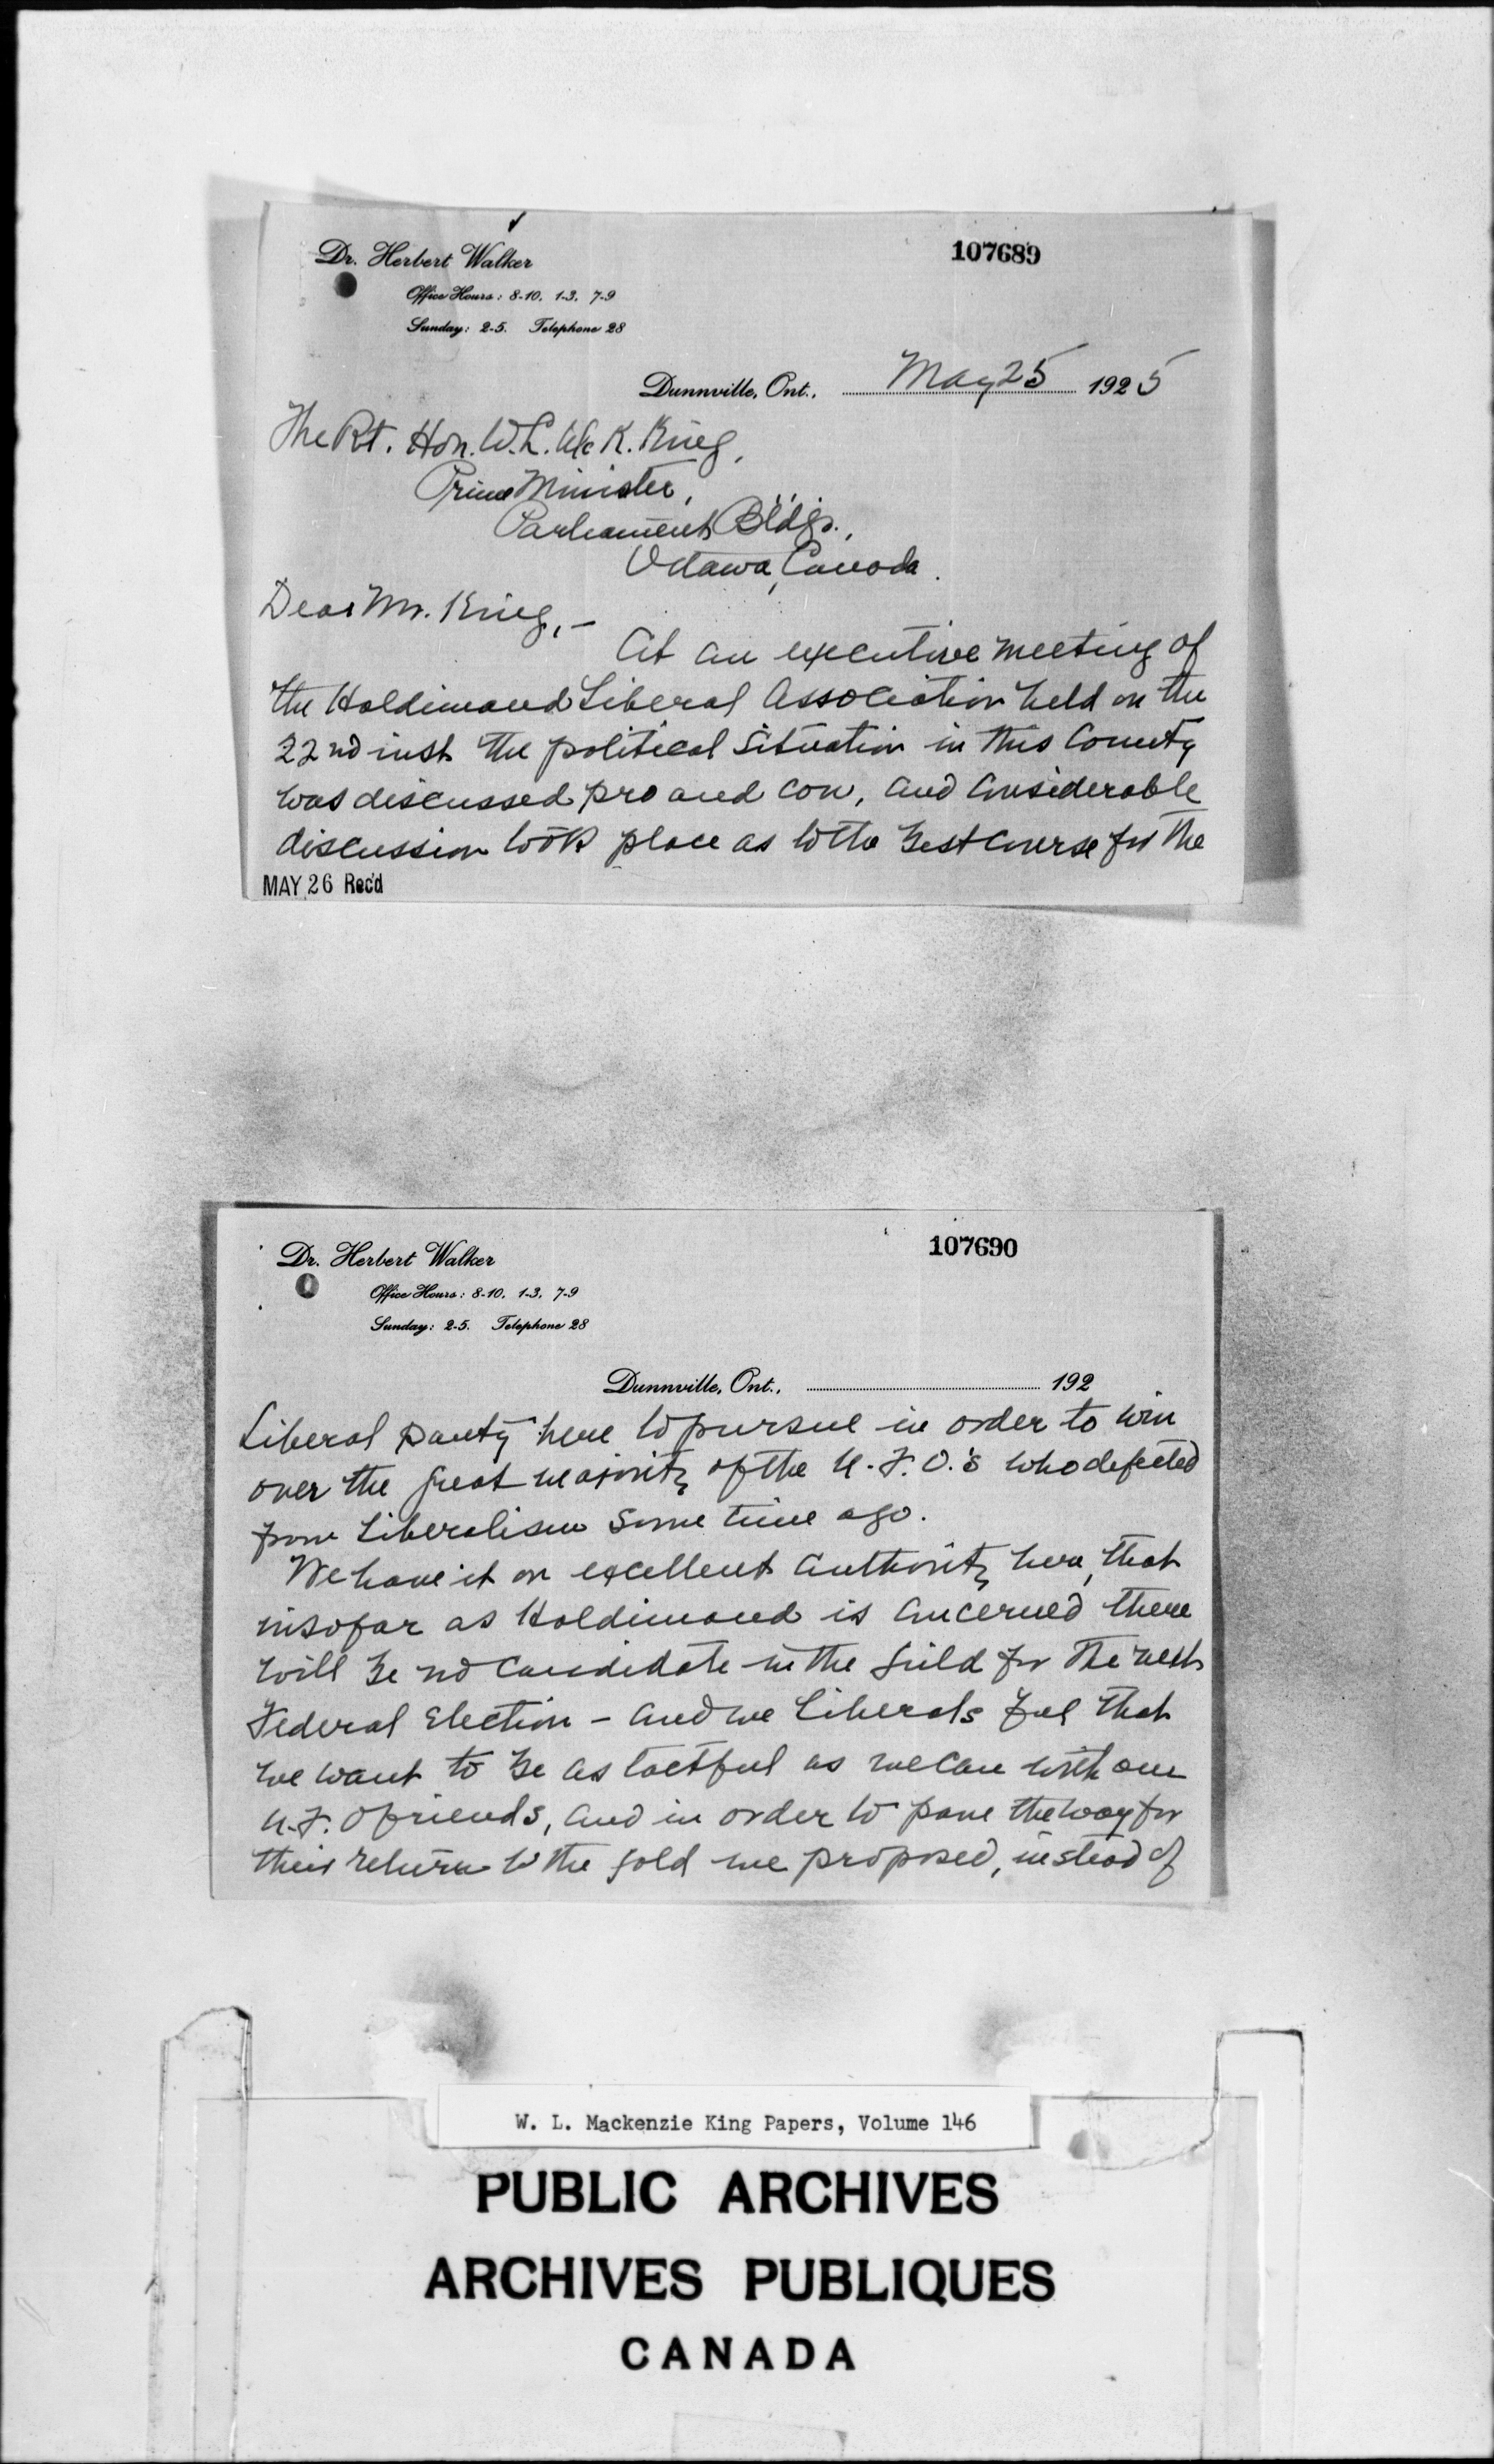 Dr. Herbert Walker
107689
Office Hours: 8-10. 1-3. 7-9
Sunday: 2-5. Telephone 28
Dunnville, Ont., May 25 1925
The Rt. Hon. W. L. McK. King,
Prime Minister,
Parliament Bldgs.,
Ottawa, Canada.
Dear Mr. King,-
At an executive meeting of
the Haldimand Liberal Association held on the
22nd inst the political situation in this County
was discussed pro and con, and considerable
discussion took place as to the best course for the
MAY 26 Rec'd
Dr. Herbert Walker
107690
Office Hours: 8-10. 1-3. 7-9
Sunday: 2-5. Telephone 28
Dunnville, Ont., 192
Liberal party here to pursue in order to win
over the great majority of the U.F.O.'s who defected
from Liberalism some time ago.
We have it on excellent authority here, that
insofar as Haldimand is concerned there
will be no candidate in the field for the next
Federal Election - and we Liberals feel that
we want to be as tactful as we can with our
U.F.O friends, and in order to pave the way for
their return to the fold we proposed, instead of
W. L. Mackenzie King Papers, Volume 146
PUBLIC ARCHIVES
ARCHIVES PUBLIQUES
CANADA